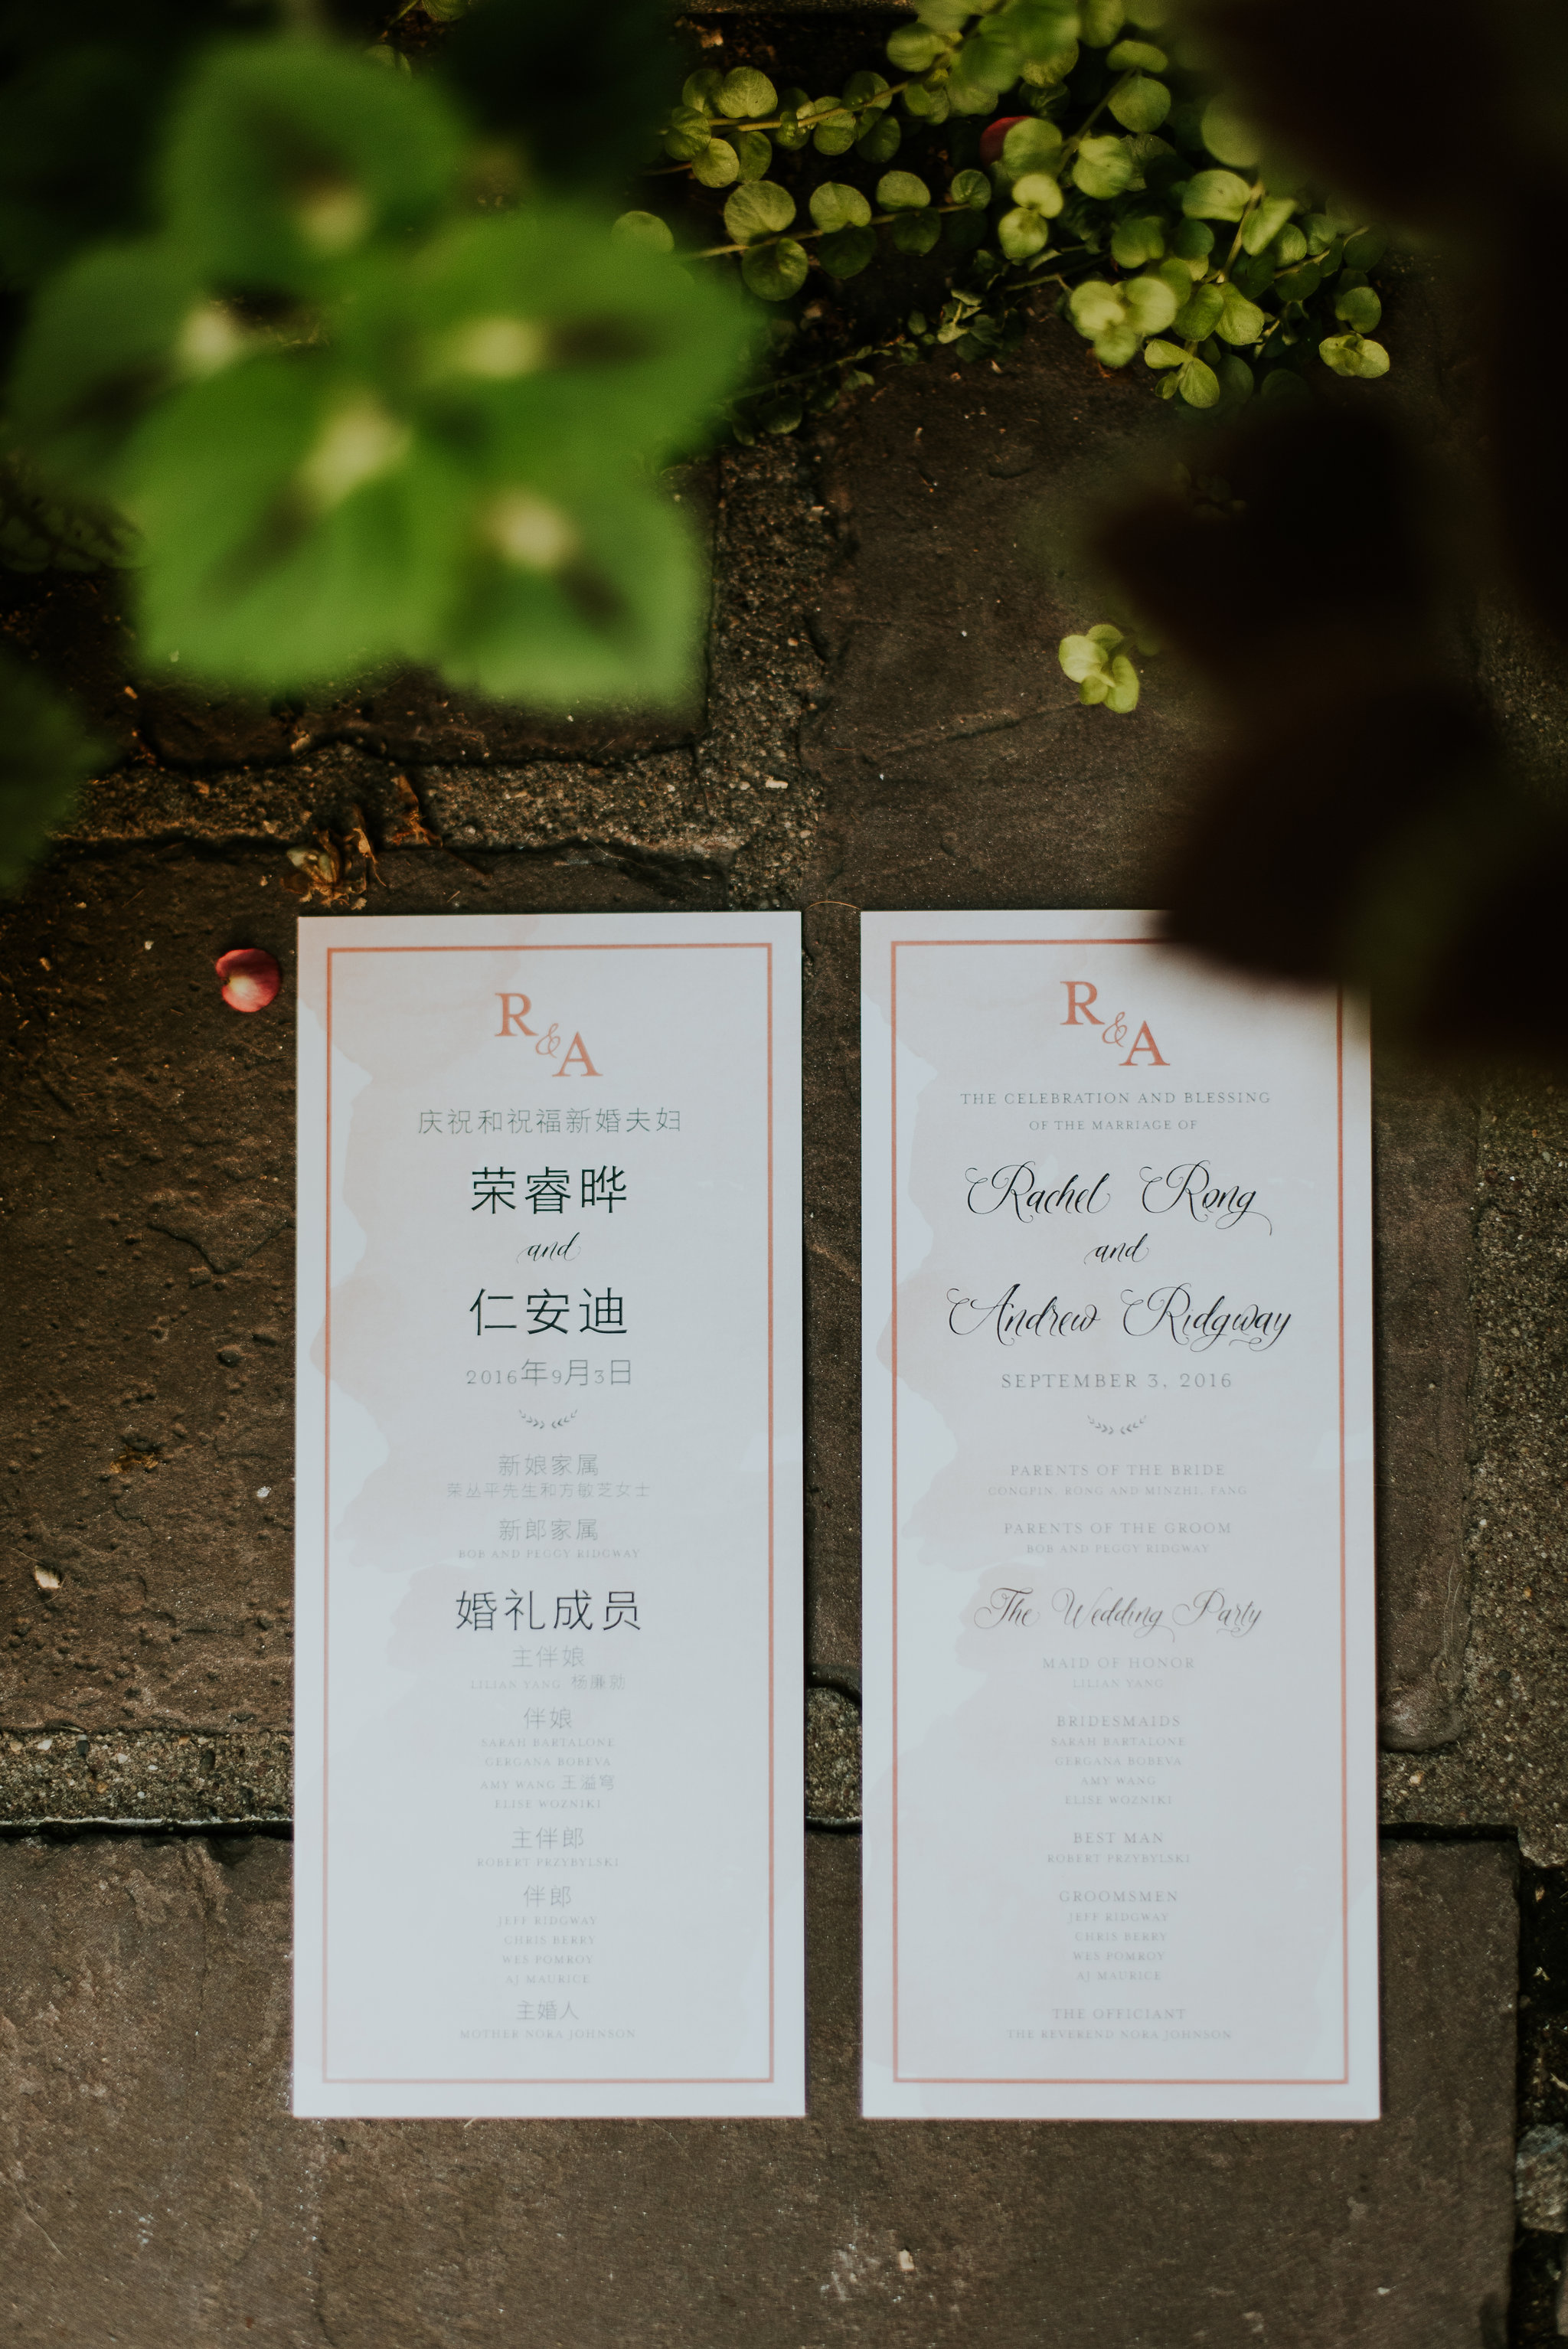 R
&
A
庆祝和祝福新婚夫妇
荣睿晔
and
仁安迪
2016年9月3日
新娘家属
荣丛平先生和方敏芝女士
新郎家属
BOB AND PEGGY RIDGWAY
婚礼成员
主伴娘
LILIAN YANG 杨廉勍
伴娘
SARAH BARTALONE
GERGANA BOBEVA
AMY WANG 王溢穹
ELISE WOZNIKI
主伴郎
ROBERT PRZYBYLSKI
伴郎
JEFF RIDGWAY
CHRIS BERRY
WES POMROY
AJ MAURICE
主婚人
MOTHER NORA JOHNSON
R
&
A
THE CELEBRATION AND BLESSING
OF THE MARRIAGE OF
Rachel Rong
and
Andrew Ridgway
SEPTEMBER 3, 2016
PARENTS OF THE BRIDE
CONGPIN, RONG AND MINZHI, FANG
PARENTS OF THE GROOM
BOB AND PEGGY RIDGWAY
The Wedding Party
MAID OF HONOR
LILIAN YANG
BRIDESMAIDS
SARAH BARTALONE
GERGANA BOBEVA
AMY WANG
ELISE WOZNIKI
BEST MAN
ROBERT PRZYBYLSKI
GROOMSMEN
JEFF RIDGWAY
CHRIS BERRY
WES POMROY
AJ MAURICE
THE OFFICIANT
THE REVEREND NORA JOHNSON